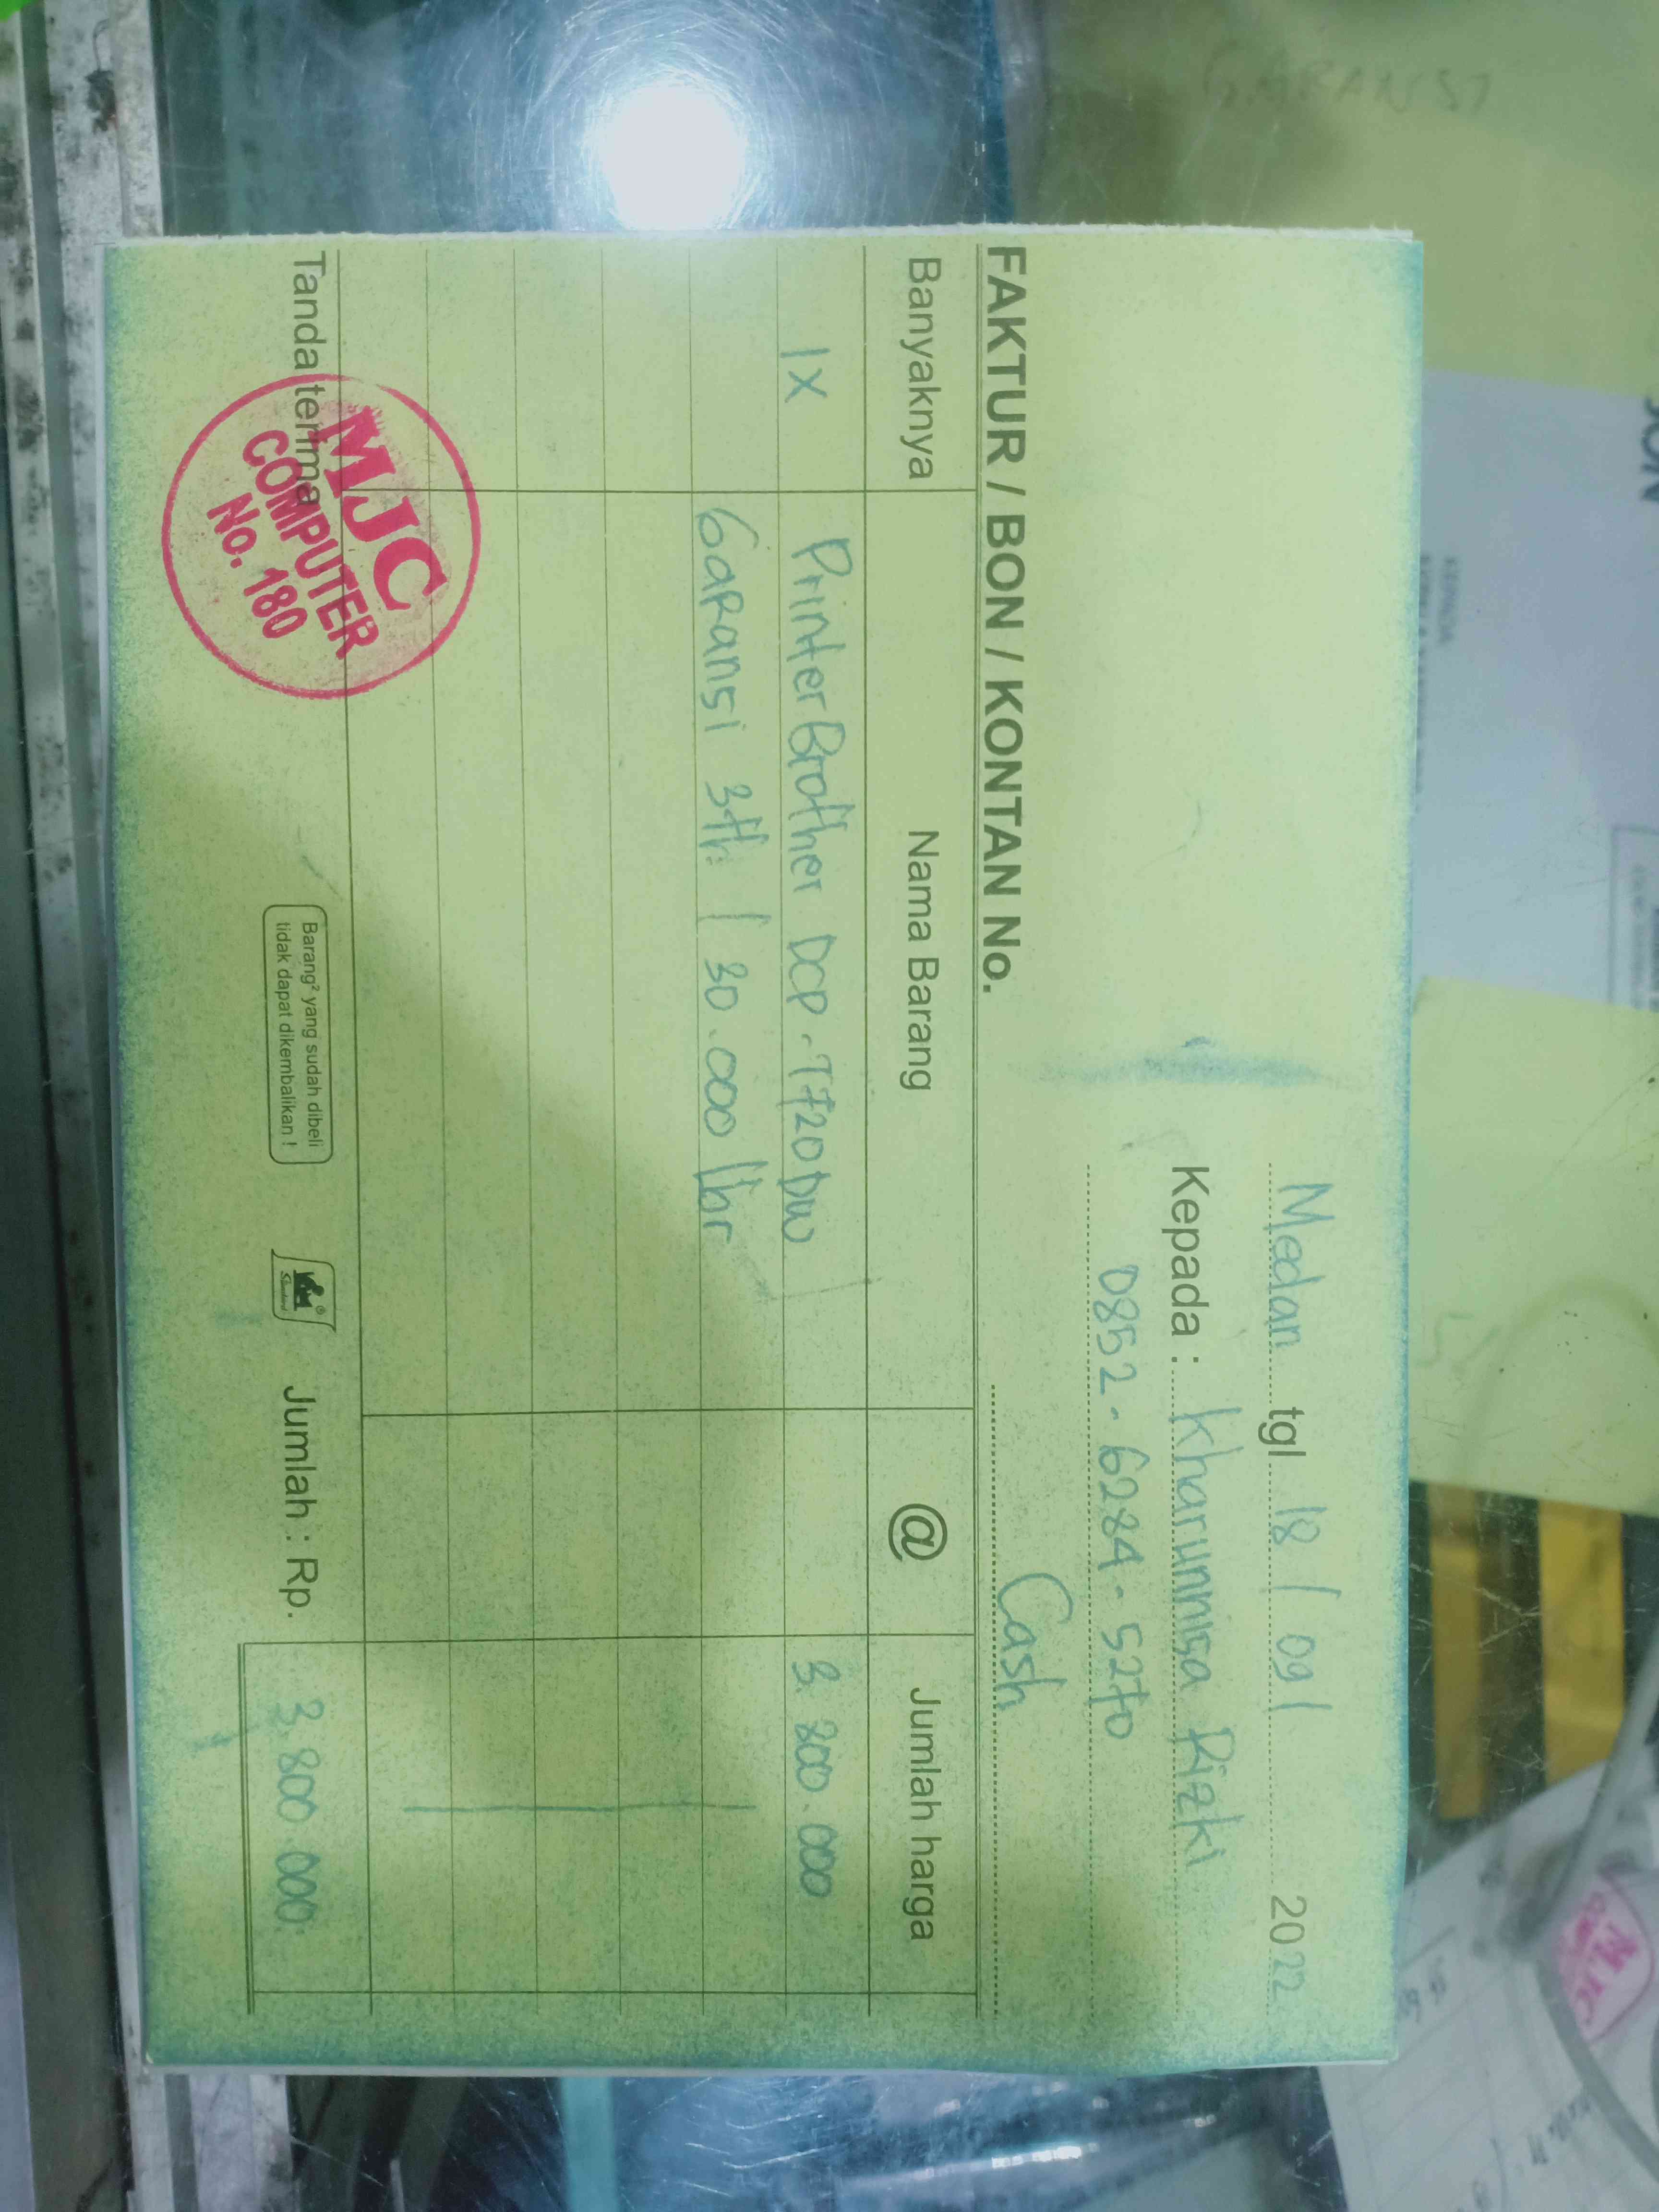 Medan tgl 18 / 09 / 2022
Kepada : Kharunnisa Rizki
0852 - 6284 - 5270
FAKTUR / BON / KONTAN No. Cash
Banyaknya Nama Barang @ Jumlah harga
1x Printer Brother DCP - T720DW 3. 800. 000
Garansi 3th / 30.000 lbr
Tanda terima
MJC
COMPUTER
No. 180
Barang² yang sudah dibeli
tidak dapat dikembalikan !
Standard
Jumlah : Rp. 3. 800 000
GARANSI
KEPADA
MJC